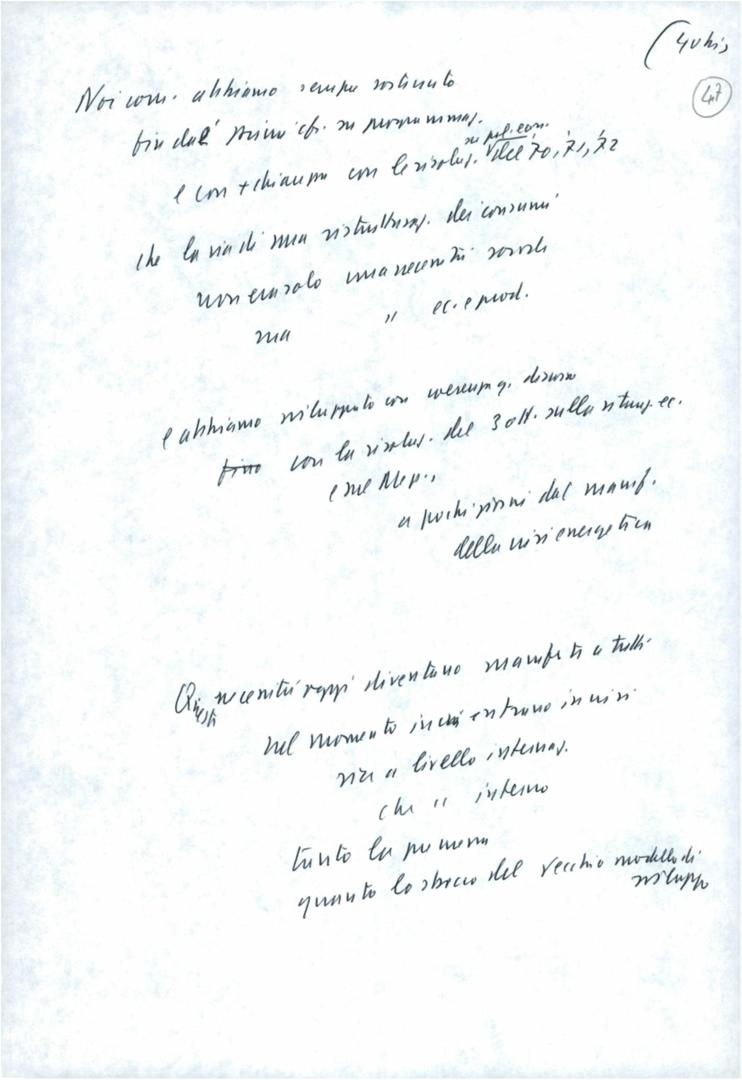 (40 bis
47
Noi com. abbiamo sempre sostenuto
fin dal primi su programmaz.
su pol. econ.
e con + chiarezza con le risoluz. del 70, '71, '72
che la via di una ristrutturaz. dei consumi
non era solo una necessità sociale
ma " ec. e prod.
e abbiamo sviluppato con coerenza q. discorso
fino con la risoluz. del 3 ott. sulla situaz. ec.
e nel Mezz.,
a pochi giorni dal manif.
della crisi energetica
Queste necessità oggi diventano manifeste a tutti
nel momento in cui entrano in crisi
sia a livello internaz.
che " interno
tanto la
quanto lo sbocco del vecchio modello di
sviluppo